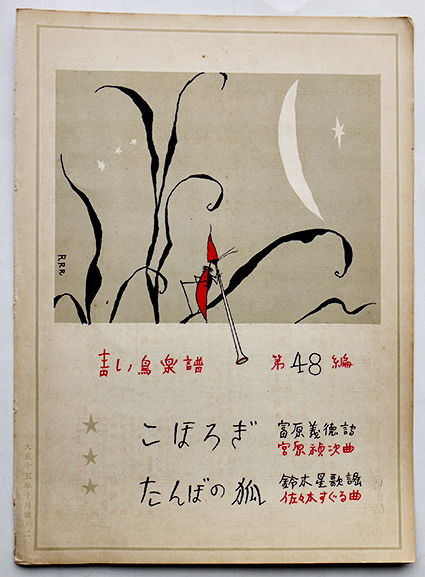 R.R.R
青い鳥楽譜 第48編
こほろぎ 富原義徳詩
宮原禎次曲
たんぼの狐 鈴木星歌謡
佐々木すぐる曲
大正十五年十月